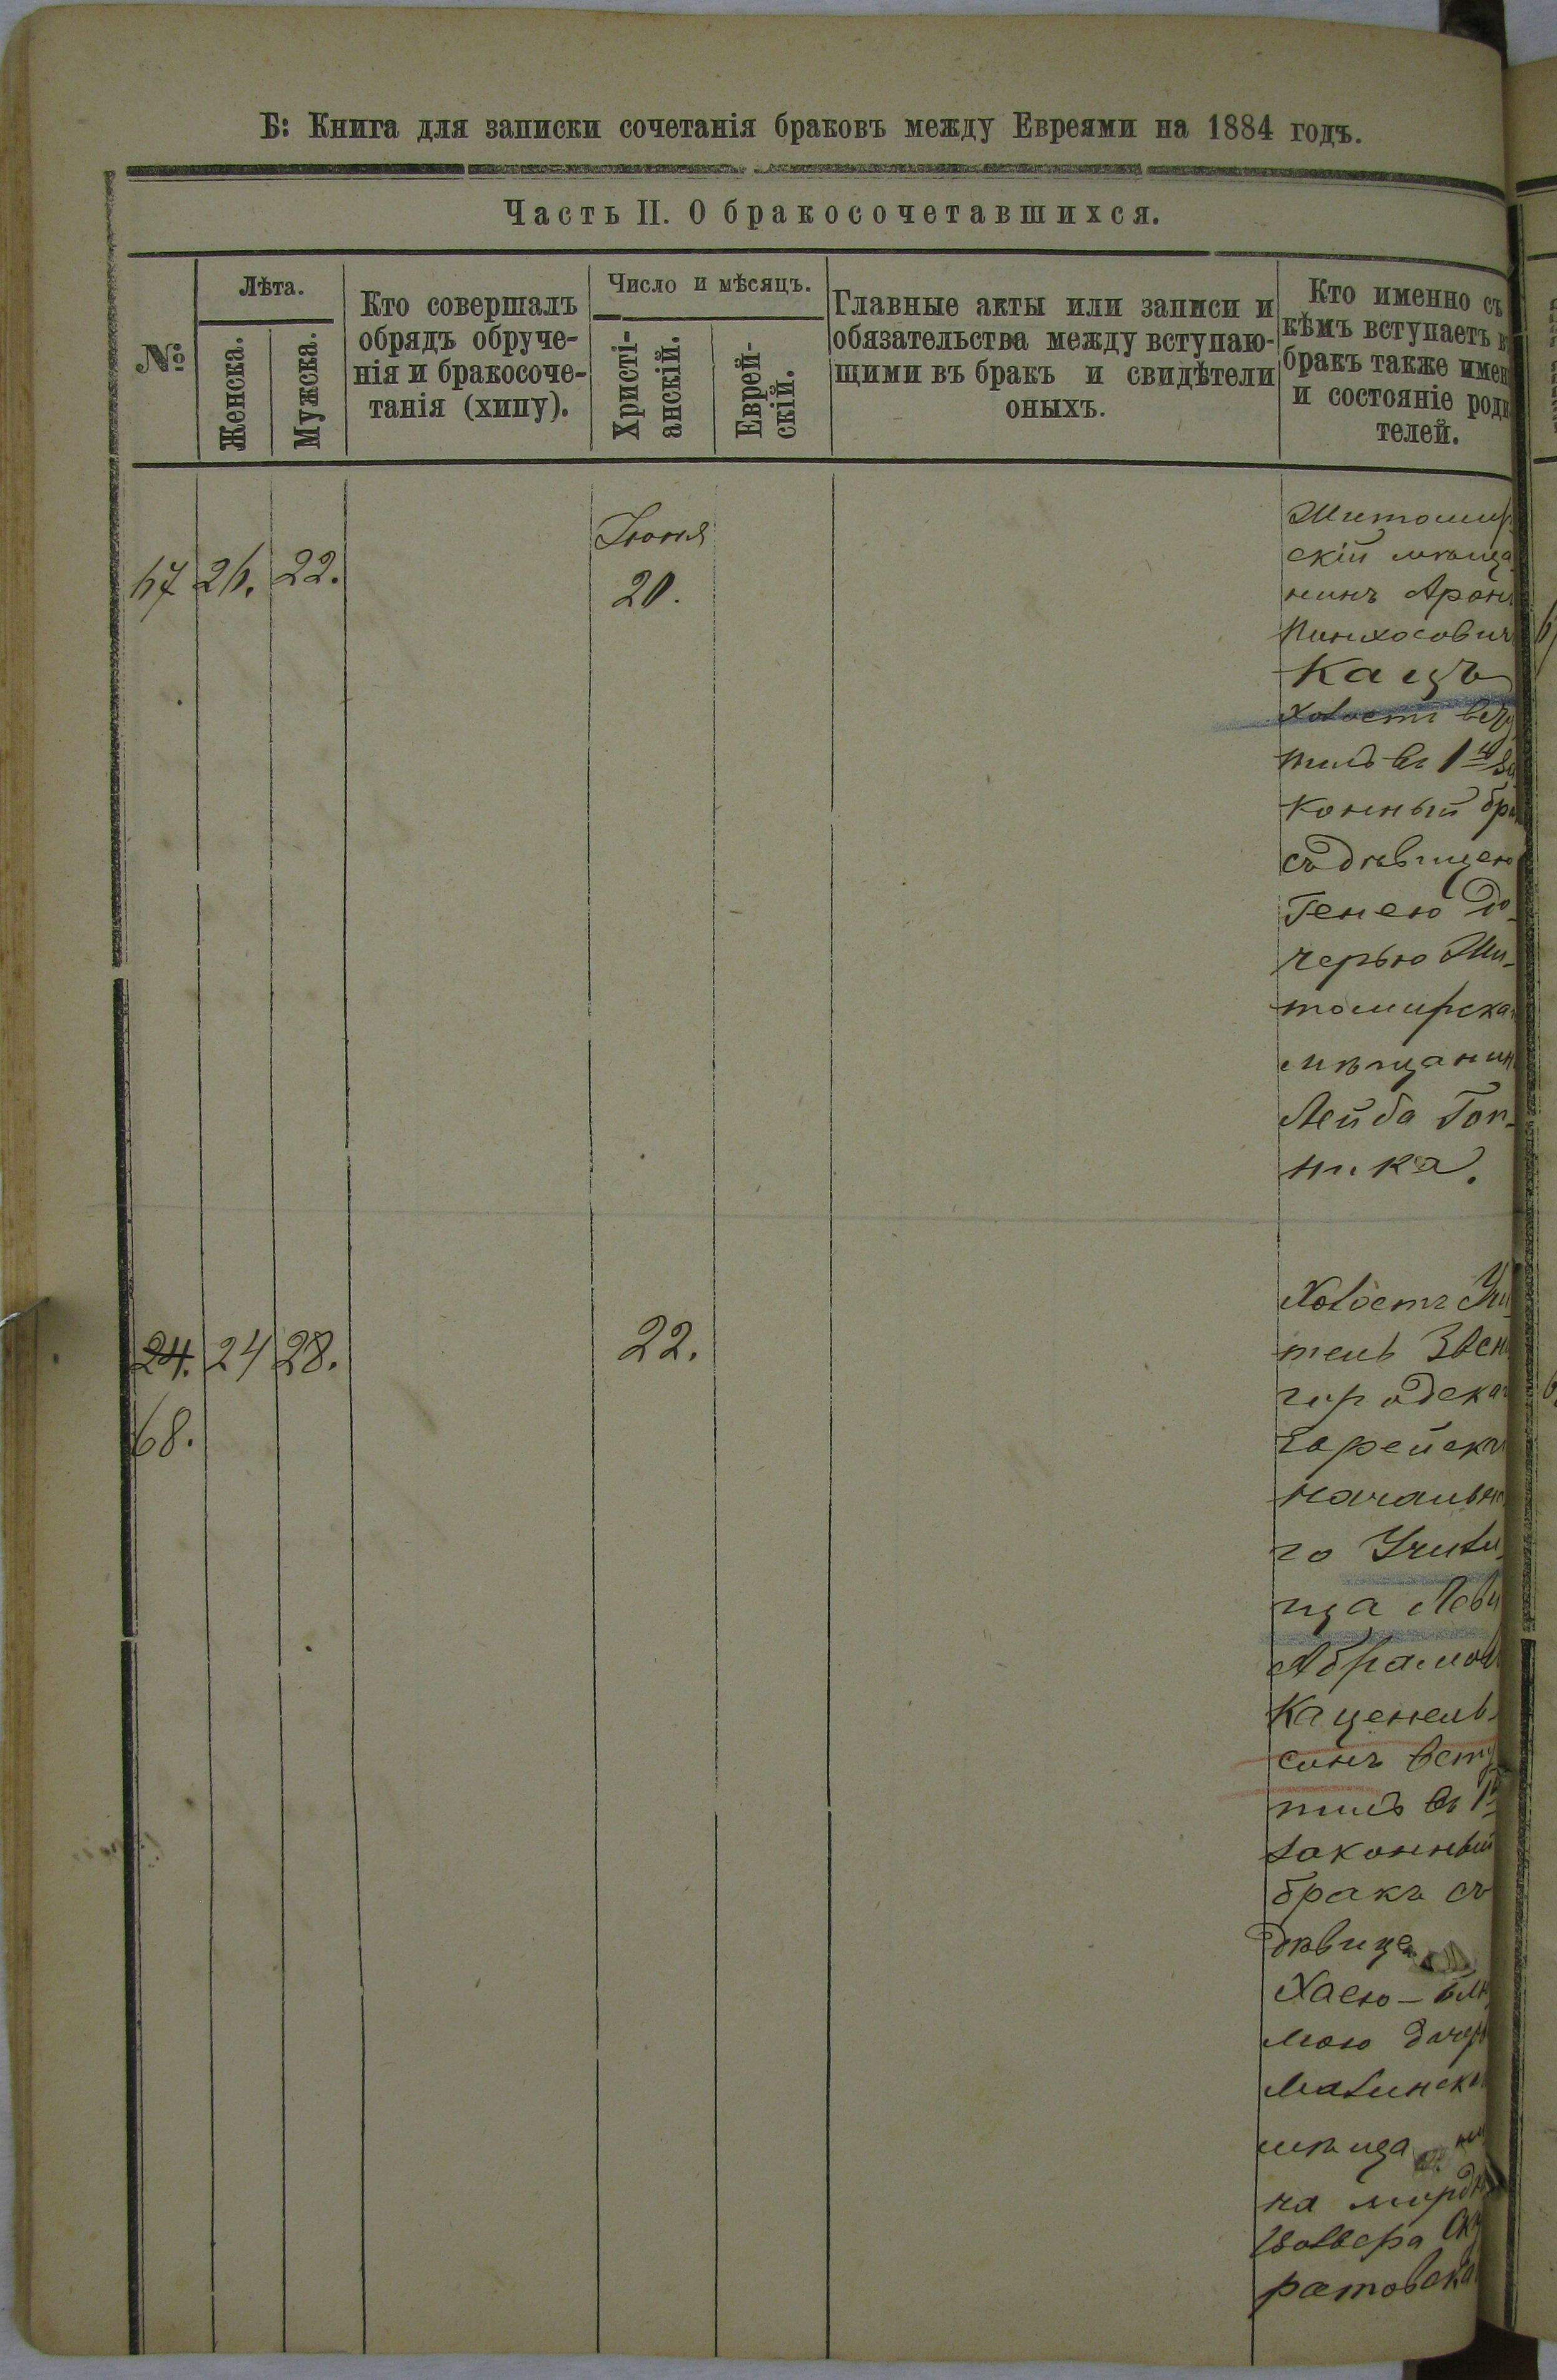 Б: Книга для записки сочетанія браковъ между Евреями на 1884 годъ.
Часть II. О бракосочетавшихся.
№
Лѣта.
Женска.
Мужска.
Кто совершалъ
обрядъ обруче-
нія и бракосоче-
танія (хипу).
Число и мѣсяцъ.
Христі-
анскій.
Еврей-
скій.
Главные акты или записи и
обязательства между вступаю-
щими въ бракъ и свидѣтели
оныхъ.
Кто именно съ
кѣмъ вступаетъ в
бракъ также имен
и состояніе роди
телей.
67 26. 22.
Іюня
20.
Житомир
скій мѣща
нинъ Аронъ
Пинхосовичъ
Кацъ
Холостъ всту
пилъ въ 1й за
конный бра
съ дѣвицею
Генею до-
черью Жи-
томирскаг
мѣщанин
Лейба Гоп-
ника.
24. 24 28.
68.
22.
Холостъ Учи
тель Звени
городскаг
Еврейскаг
начальна
го Учили
ща Леви
Абрамов
Каценель-
сонъ всту
пилъ въ 1й
законный
бракъ съ
дѣвице
Хасю-
мою дочер
Малинска
мѣща ни
на
ратовска